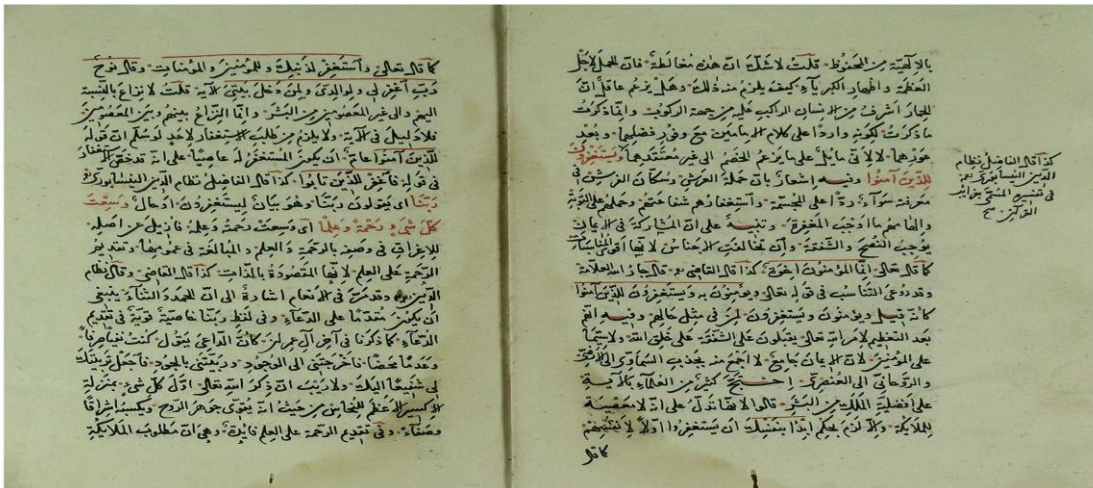 بالآلهية من المحفوظ قلت لا شك ان هذه مغالطة فان الحمل لاجل
العظمة واظهار الكبرياء كيف يلزم منه ذلك وهل يزعم عاقل ان
الحمار اشرف من الانسان الراكب عليه من جهة الركوبية وانما ذكرت
ما ذكرت لكونه واردا على كلام الامامين مع وفور فضلهما وبعد
عودهما لا لانى مائل على ما يزعم الخصم الى غير معتقدهما ويستغفرون
للذين آمنوا وفيه اشعار بان حملة العرش وسكان الفرش فى
معرفته سواء ردا على المجسمة واستغفارهم شفاعتهم وحملهم على التوبة
والهامهم ما اوجب المغفرة وتنبيه على ان المشاركة فى الايمان
يوجب النصح والشفقة وان تخالفت الاجناس لانها اقوى المناسبات
كما قال تعالى انما المؤمنون اخوة كذا قاله القاضى وقال جار الله العلامة
وقد روعى التناسب فى قوله تعالى ويؤمنون به ويستغفرون للذين آمنوا
كانه قيل ويؤمنون ويستغفرون لمن فى مثل حالهم وفيه انهم
بعد التعظيم لامر الله تعالى يقبلون على الشفقة على خلق الله ولا سيما
على المؤمنين لان الايمان جامع لا اجمع منه يجذب السماوى الى الارضى
والروحانى الى العنصرى احتج كثير من العلماء بالآية
على افضلية الملك من البشر قالوا لانها تدل على انه لا معصية
للملايكة والا لزم بحكم ابدأ بنفسك ان يستغفروا اولا لانفسهم
كما قال
كذا قاله الفاضل نظام
الدين النيسابورى
فى تفسيره المسمى بغرايب
القرآن
كما قال تعالى واستغفر لذنبك وللمؤمنين والمؤمنات وقال نوح
رب اغفر لى ولوالدى ولمن دخل بيتى الآية قلت لا نزاع بالنسبة
اليهم والى غير المعصومين من البشر وانما النزاع بينهم وبين المعصومين
فلا دليل فى الآية ولا يلزم من طلب الاستغفار لاحد لو سلم ان قوله
للذين آمنوا عام ان يكون المستغفر له عاصيا على انه قد خص الاستغفار
فى قوله فاغفر للذين تابوا كذا قاله الفاضل نظام الدين النيسابورى
ربنا اى يقولون ربنا وهو بيان ليستغفرون او حال وسعت
كل شىء رحمة وعلما اى وسعت رحمته وعلمه فازيل عن اصله
للاغراق فى وصفه بالرحمة والعلم والمبالغة فى عمومها وتقديم
الرحمة على العلم لانها المقصودة بالذات كذا قاله القاضى وقال نظام
الدين وقد مر فى الانعام اشارة الى ان الحمد والثناء ينبغى
ان يكون مقدما على الدعاء وفى لفظ ربنا خاصية قوية فى تقديم
الدعاء كما ذكرنا فى آخر آل عمران كان الداعى يقول كنت نفيا صرفا
وعدما محضا فاخرجتنى الى الوجود وربيتنى بالجود فاجعل تربيتك
لى شفيعا اليك ولا ريب ان ذكر الله تعالى اول كل شىء بمنزلة
الاكسير الاعظم للنحاس من حيث انه يقوى جوهر الروح ويكسبه اشراقا
وصفاء وفى تقديم الرحمة على العلم فائدة وهى ان مطلوب الملايكة